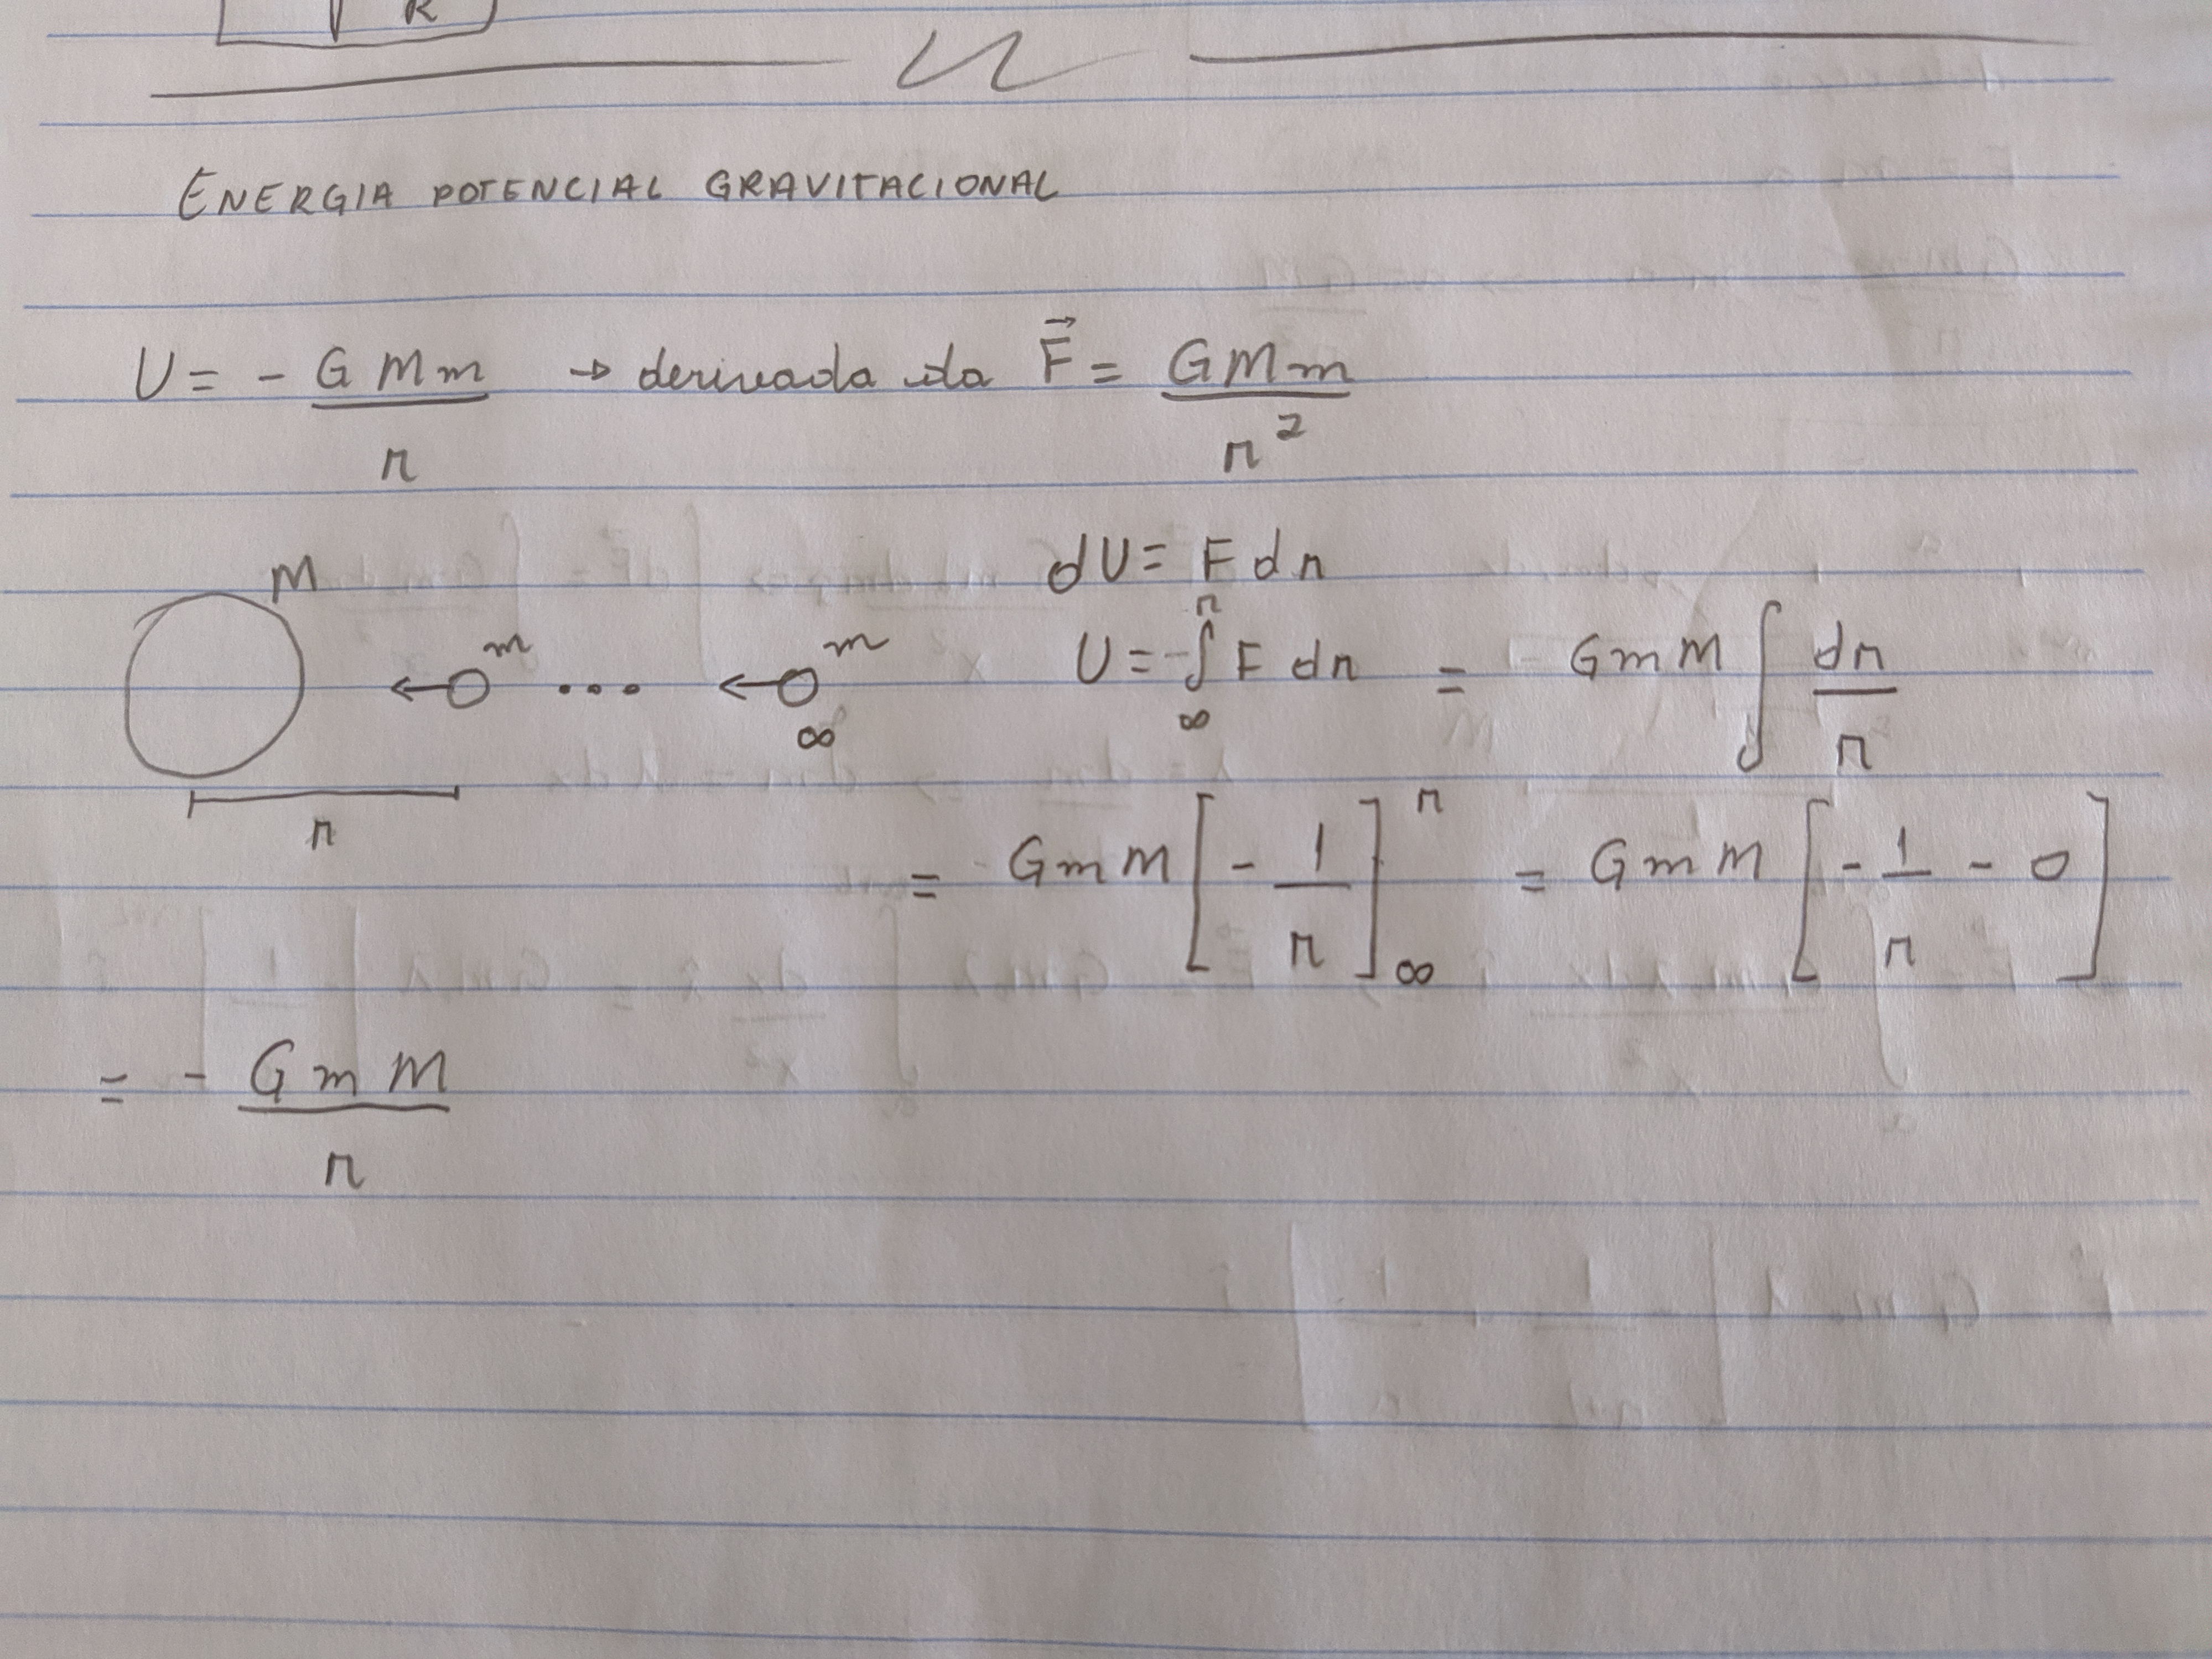 R
ENERGIA POTENCIAL GRAVITACIONAL
U = - GMm/r → derivada da F⃗ = GMm/r²
dU = F dr
M
m ... m
∞
r
U = -∫_∞^r F dr = GmM ∫ dr/r
= GmM [- 1/r]_∞^r = GmM [- 1/r - 0]
= - GmM/r